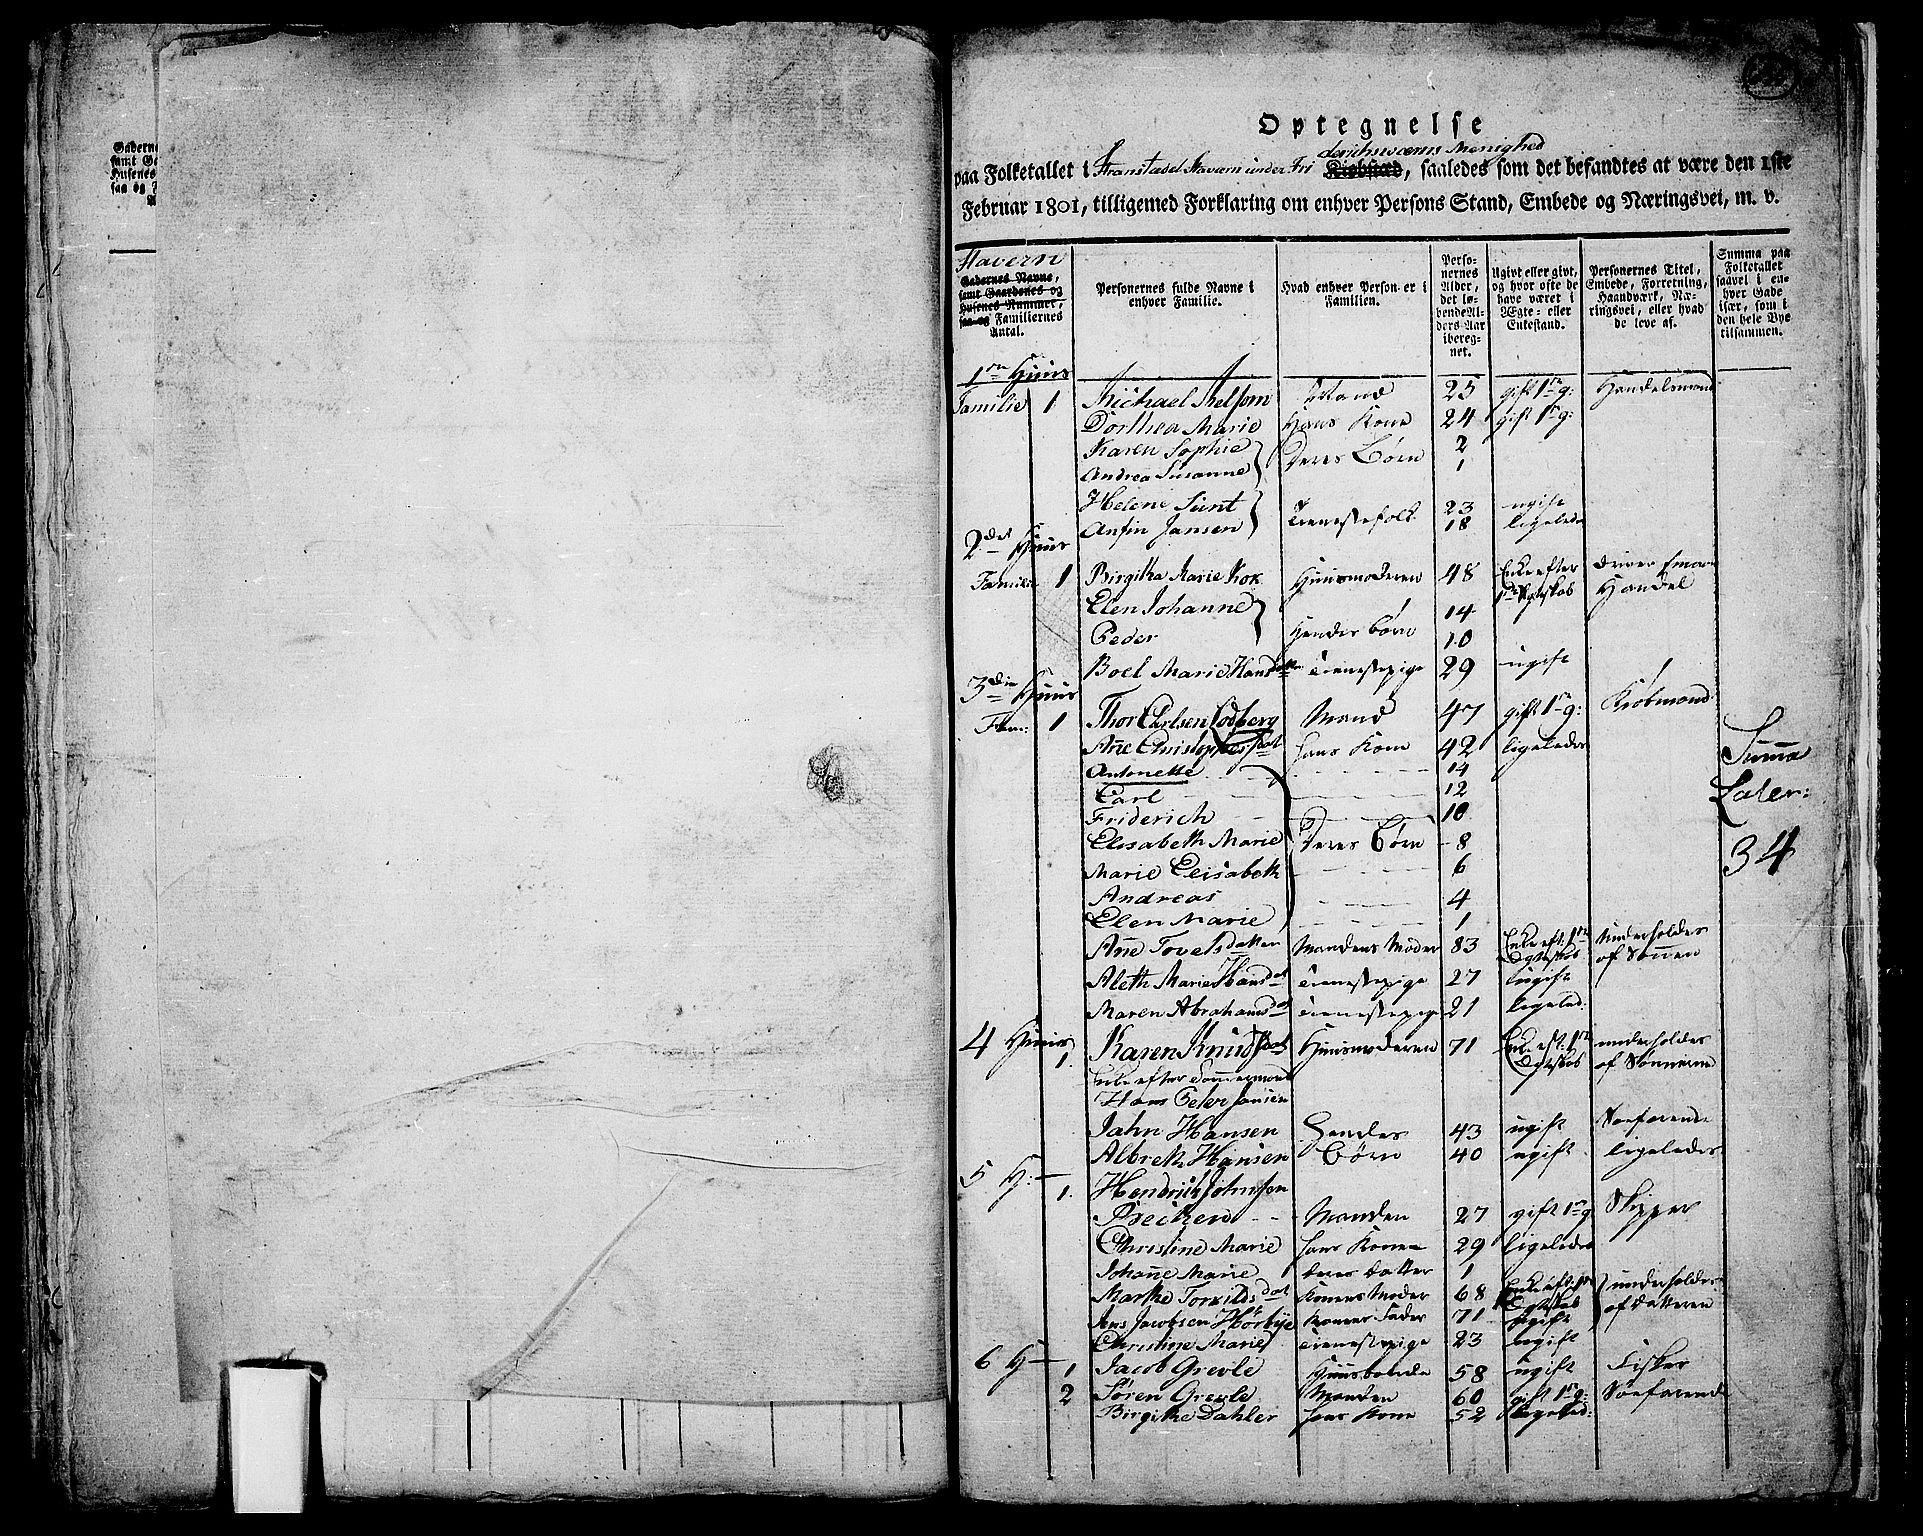 Gaderne
samt Ga
Husenes
saa og
A
Optegnelse
derichsværns Menighed
paa Folketallet i Stranstædet Staværn under Fri Kiøbstad, saaledes som det befandtes at være den 1ste
Februar 1801, tilligemed Forklaring om enhver Persons Stand, Embede og Næringsvei, m. v.
Stavern
Gadernes Navne, samt Gaardenes og Husenes Nummer, saa og Familiernes Antal.
Personernes fulde Navne i enhver Familie.
Hvad enhver Person er i Familien.
Personernes Alder, det løbende Alders Aar iberegnet.
Ugivt eller givt, og hvor ofte de have været i Ægte- eller Enkestand.
Personernes Titel, Embede, Forretning, Haandværk, Næringsvei, eller hvad de leve af.
Summa paa Folketallet saavel i enhver Gade især, som i den hele Bye tilsammen.
1ste Huus
Familie 1 Michael Mand 25 gift 1ste g: Handelsmand
Dorthea Marie Hans Kone 24 gift 1ste g:
Karen Sophie Deres Børn 2
Andrea Susanne 1
Helene Sünt Tienestefolk 23 ugift
Anfin Jansen 18 ligeledes
2det Huus
Familie 1 Birgitha Marie Kok Huusmoderen 48 Enke efter 1ste Egteskab driver Handel
Elen Johanne 14
Peder Hendes børn 10
Boel Marie Hansdatter tienestepige 29 ugift
3die Huus
Fam: 1 Thor Carlsen Lodberg Mand 47 gift 1ste g: Kiøbmand
Añe Christophersdat hans Kone 42 ligeledes
Antonette 14
Carl 12
Friderich 10
Elisabeth Marie Deres Børn 8
Marie Elisabeth 6
Andreas 4
Elen Marie 1
Summa
Later:
34
Añe Tovelsdatter Mandens Moder 83 Enke eft: 1ste Egteskab Underholdes af Sønnen
Aleth Marie Hansdat tienestepige 27 ugift
Maren Abrahamsdat tienestepige 21 ligeled:
4 Huus 1. Karen Knudsdat Huusmoderen 71 Enke eft: 1ste Egteskab underholdes af Sønnerne
Enke efter Tømmermand
Hans Peter Jansen
Jahn Hansen Hendes 43 ugift Søefarende
Albreth Hansen Børn 40 ugift ligeledes
5 H: 1. Hendrich Johnsen
Brecken Manden 27 gift 1ste g Skipper
Christine Marie hans Kone 29 ligeledes
Johañe Marie deres datter 1
Marthe Torkildsdat Konens Moder 68 Enke eft: 1ste Egteskab underholdes af datteren
Jens Jacobsen Hørbye Konens Fader 71 ugift
Christine Marie tienestepige 23 ugift
6 H 1 Jacob Grevle Huusbonde 58 ugift Fisker
2 Søren Grevle Manden 60 gift 1ste g: Søefarende
Birgithe Dahler hans Kone 52 ligeled: